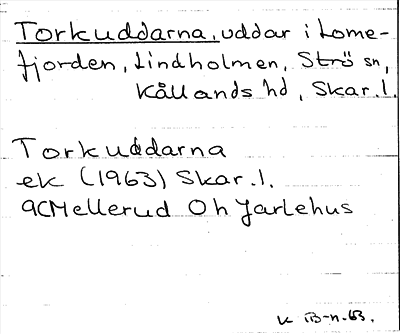 Torkuddarna, uddar i Lome-
fjorden, Lindholmen, Strö sn,
Kållands hd, Skar. l.
Torkuddarna
ek (1963) Skar. l.
9C Mellerud Oh Jarlehus